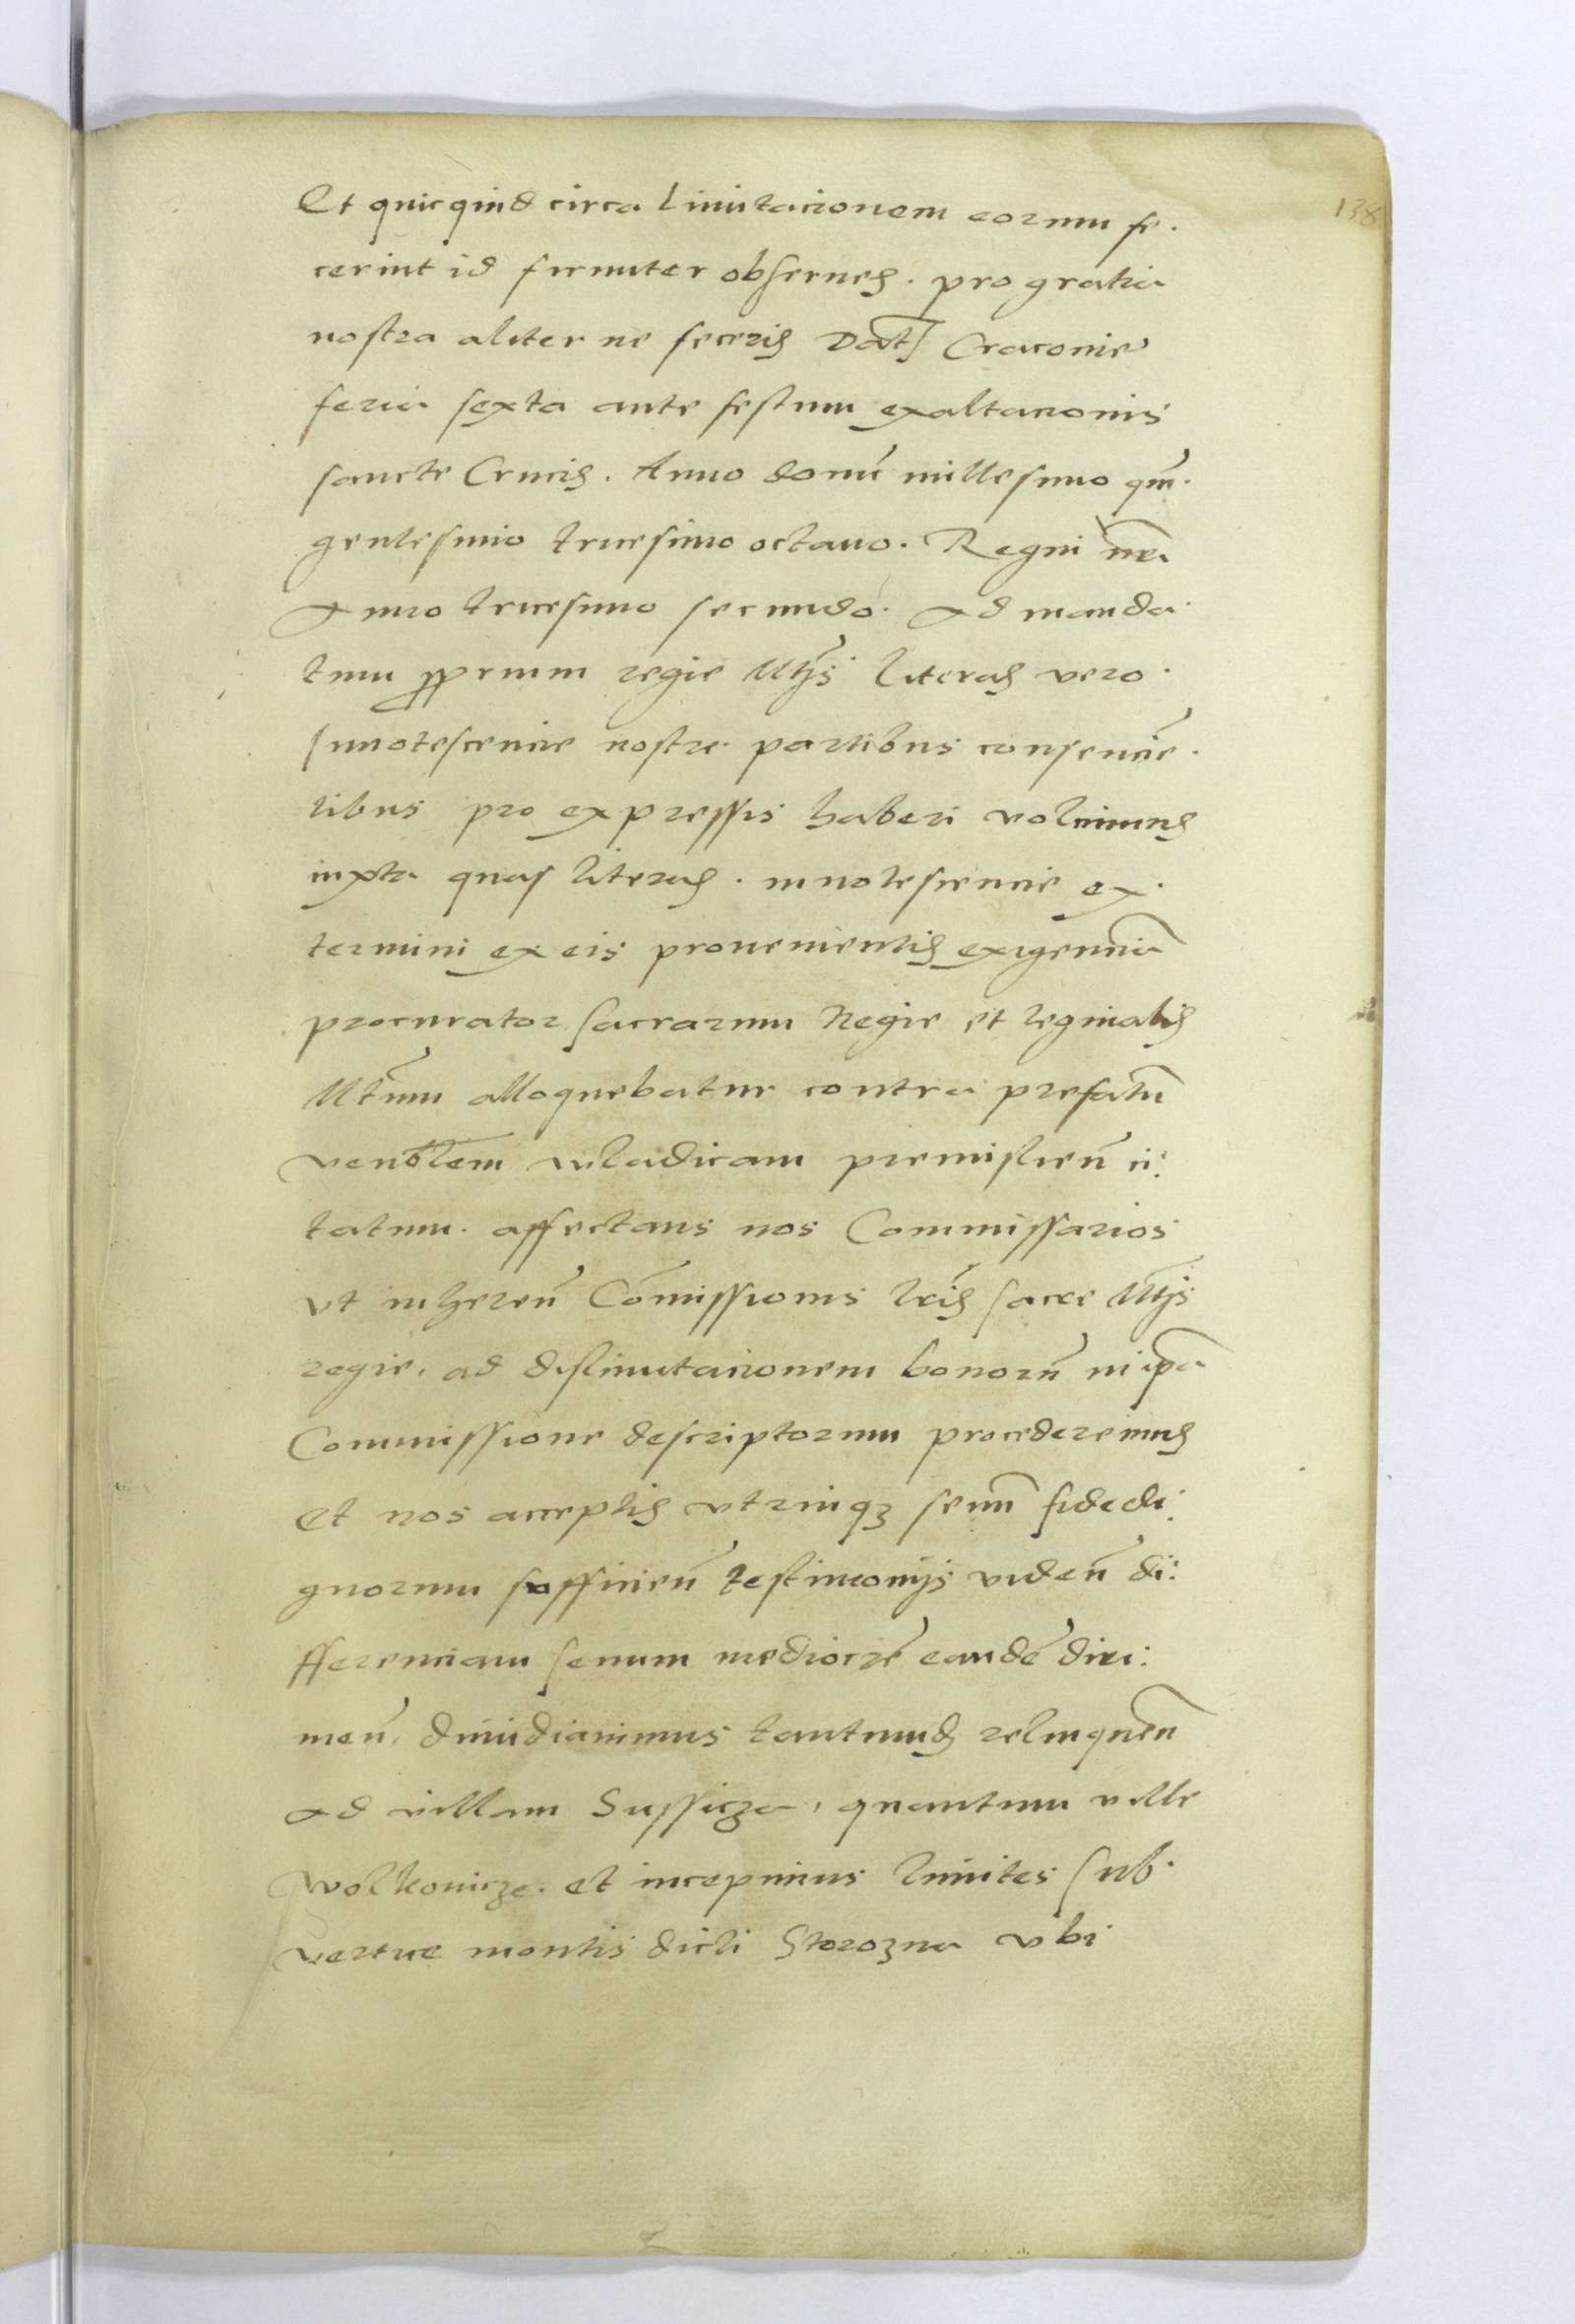 138
Et quicquid circa limitacionem eorum fe.
cerint id firmiter observes. pro gratia
nostra aliter ne feceris Dat Cracovie
feria sexta ante festum exaltacionis
sancte Crucis. Anno domī millesimo qūi.
gentesimo tricesimo octavo. Regni nrī
Anno tricesimo secundo. Ad manda.
tum pprium regie Mtis literas vero.
Innotescencie nostre partibus consencīe.
tibus pro expressis haberi volumus
iuxta quas literas. innotescencie ex.
termini ex eis provenientis exigenciā
procurator sacrarum Regie et reginalis
Mtum alloquebatur contra prefatū
venblem wladicam premislieñ ci:
tatum. affectans nos Commissarios
vt inhereñ Cōmissionis lrīs sacre Mtis
regie. ad dislimitacionem bonorū in ipā
Commissione descriptorum procederemus
Et nos acceptis vtrinqз senū fidedi:
gnorum sufficieñ testimonijs videñ di:
fferenciam senum mediocrē eandē diri:
meñ. dimidiavimus tantumdз relinqueñ
ad villam Sussicza, quantum ville
Wolkovicze. et incepimus limites sub.
vertice montis dicti Storozna vbi